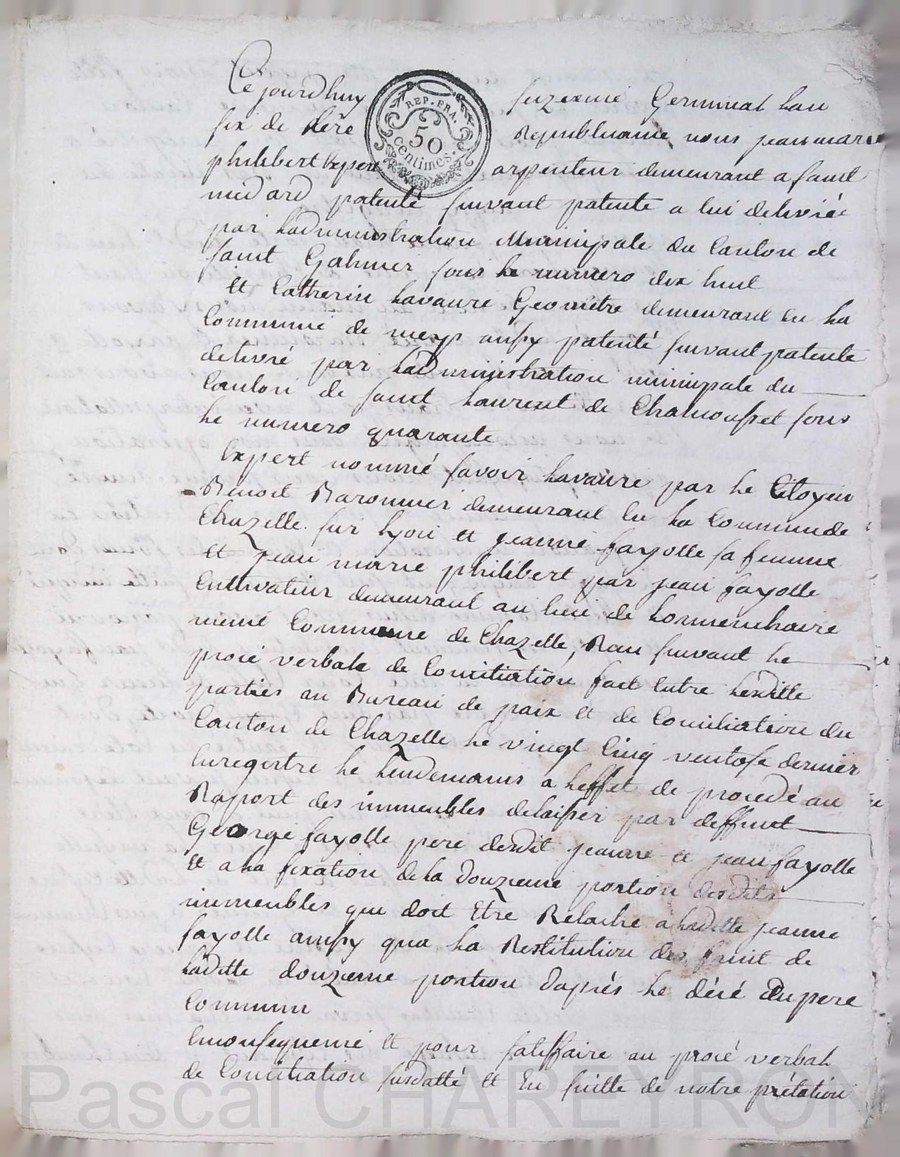 Cejourdhuy seizeime Germinal lan
six de lère Republicaine nous jean marie
REP. FRA.
50
centimes.
philibert expert arpenteur demeurant a saint
medard patenté suivant patente a lui delivrée
par ladministration Municipale du Canton de
saint Galmier sous le numero dix huit
et Catherin lavaure Geomêtre demeurant en la
Commune de meys aussy patenté suivant patente
delivré par ladministration municipale du
Canton de saint laurent de Chamousset sous
le numero quarante
Expert nommé savoir lavaure par le Citoyen
Benoit Baronnier demeurant en la Commune de
Chazelle sur lyon et jeanne fayolle sa femme
et jean marie philibert par jean fayolle
Cultivateur demeurant au lieu de
meme Commune de Chazelle, suivant le
procé verbale de Conciliation fait entre lesditte
parties au Bureau de paix et de Conciliation du
Canton de Chazelle le vingt Cinq ventose dernier
enregistre le lendemains a leffet de procedé au
Raport des immeubles delaisser par deffunt
George fayolle pere desdit jeanne et jean fayolle
et a la fixation de la douzieme portion desdits
immeubles qui doit Etre Relaché a laditte jeanne
fayolle aussy qua la Restitution des fruit de
laditte douzeme portion daprés le décé du pere
Commun
Enconsequence et pour satisfaire au procé verbal
de Conciliation susdatté et En suitte de notre prétation
Pascal CHAREYRON